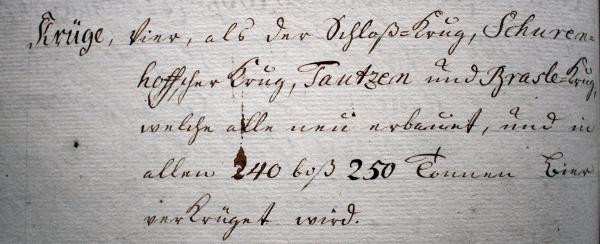 Krüge, vier, als der Schloß=Krug, Schuren=
hoffscher Krug, Tautzen und Brasle=Krug,
welche alle neu erbauet, und in
allen 240 boß 250 Tonnen Bier
verkrüget wird.